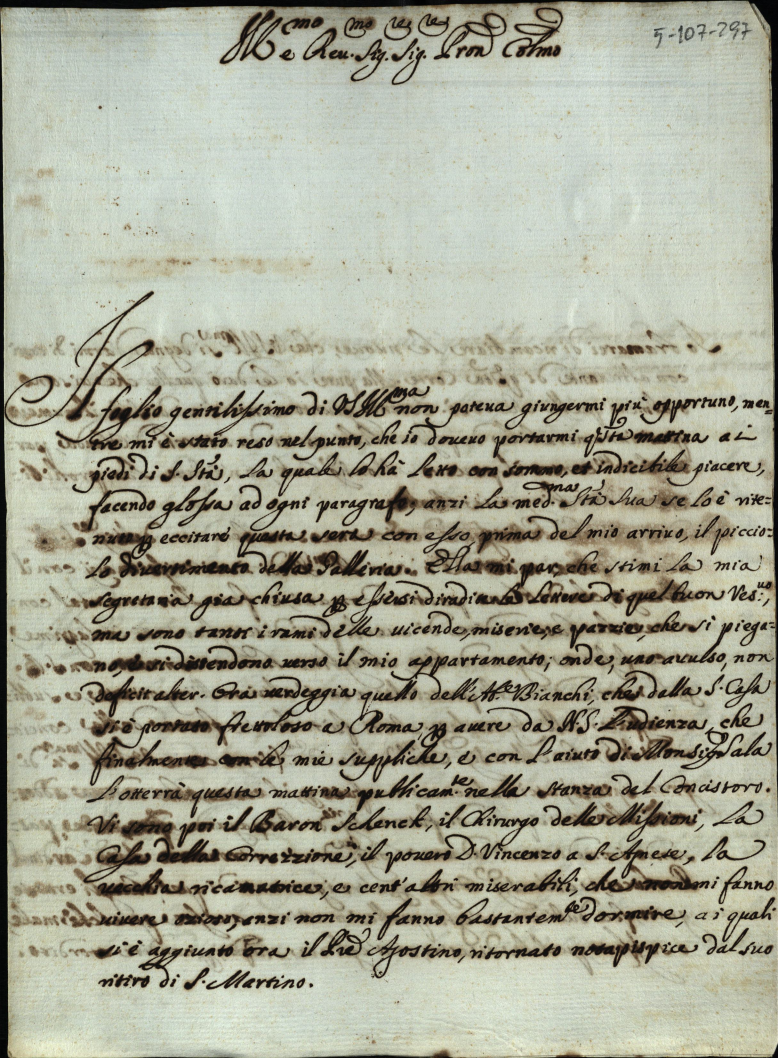 5-107-297
Ill.mo e Rev.mo Sig.re Sig.re Pron Colmo
Il foglio gentilissimo di VS Ill.ma non poteva giungermi più opportuno, men=
tre mi è stato reso nel punto, che io dovevo portarmi q.sta mattina a i
piedi di S. Stà, la quale lo hà letto con sommo, et indicibile piacere,
facendo glossa ad ogni paragrafo, anzi la med.ma Stà Sua se lo è rite=
nuto p eccitare questa sera con esso prima del mio arrivo, il piccio=
lo divertimento della Galleria. Ella mi par, che stimi la mia
segretaria gia chiusa p essersi diradate le lettere di quel buon Ves.vo,
ma sono tanti i rami delle vicende, miserie, e pazzie, che si piega=
no, e si distendono verso il mio appartamento; onde, uno avulso, non
deficit alter. Ora verdeggia quello dell'Ab.e Bianchi, che dalla S. Casa
si è portato frettoloso a Roma p avere da N.S. Udienza, che
finalmente con le mie suppliche, e con l'aiuto di Monsig Sala
l'otterrà questa mattina publicam.te nella stanza del Concistoro.
Vi sono poi il Baron Schenck, il Chirurgo delle Missioni, la
Casa della Correzzione, il povero D. Vincenzo a S. Agnese, la
vecchia ricamatrice, e cent'altri miserabili, che non mi fanno
vivere ozioso, anzi non mi fanno bastantem.te dormire, ai quali
si è aggiunto ora il Agostino, ritornato dal suo
ritiro di S. Martino.